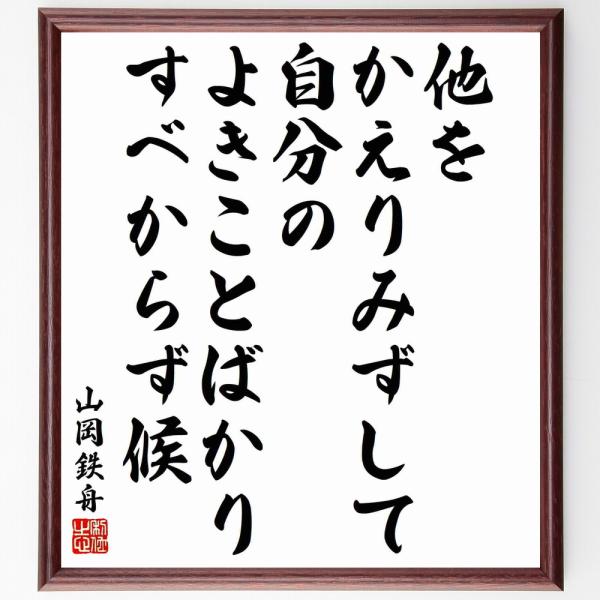 他を
かえりみずして
自分の
よきことばかり
すべからず候
山岡鉄舟